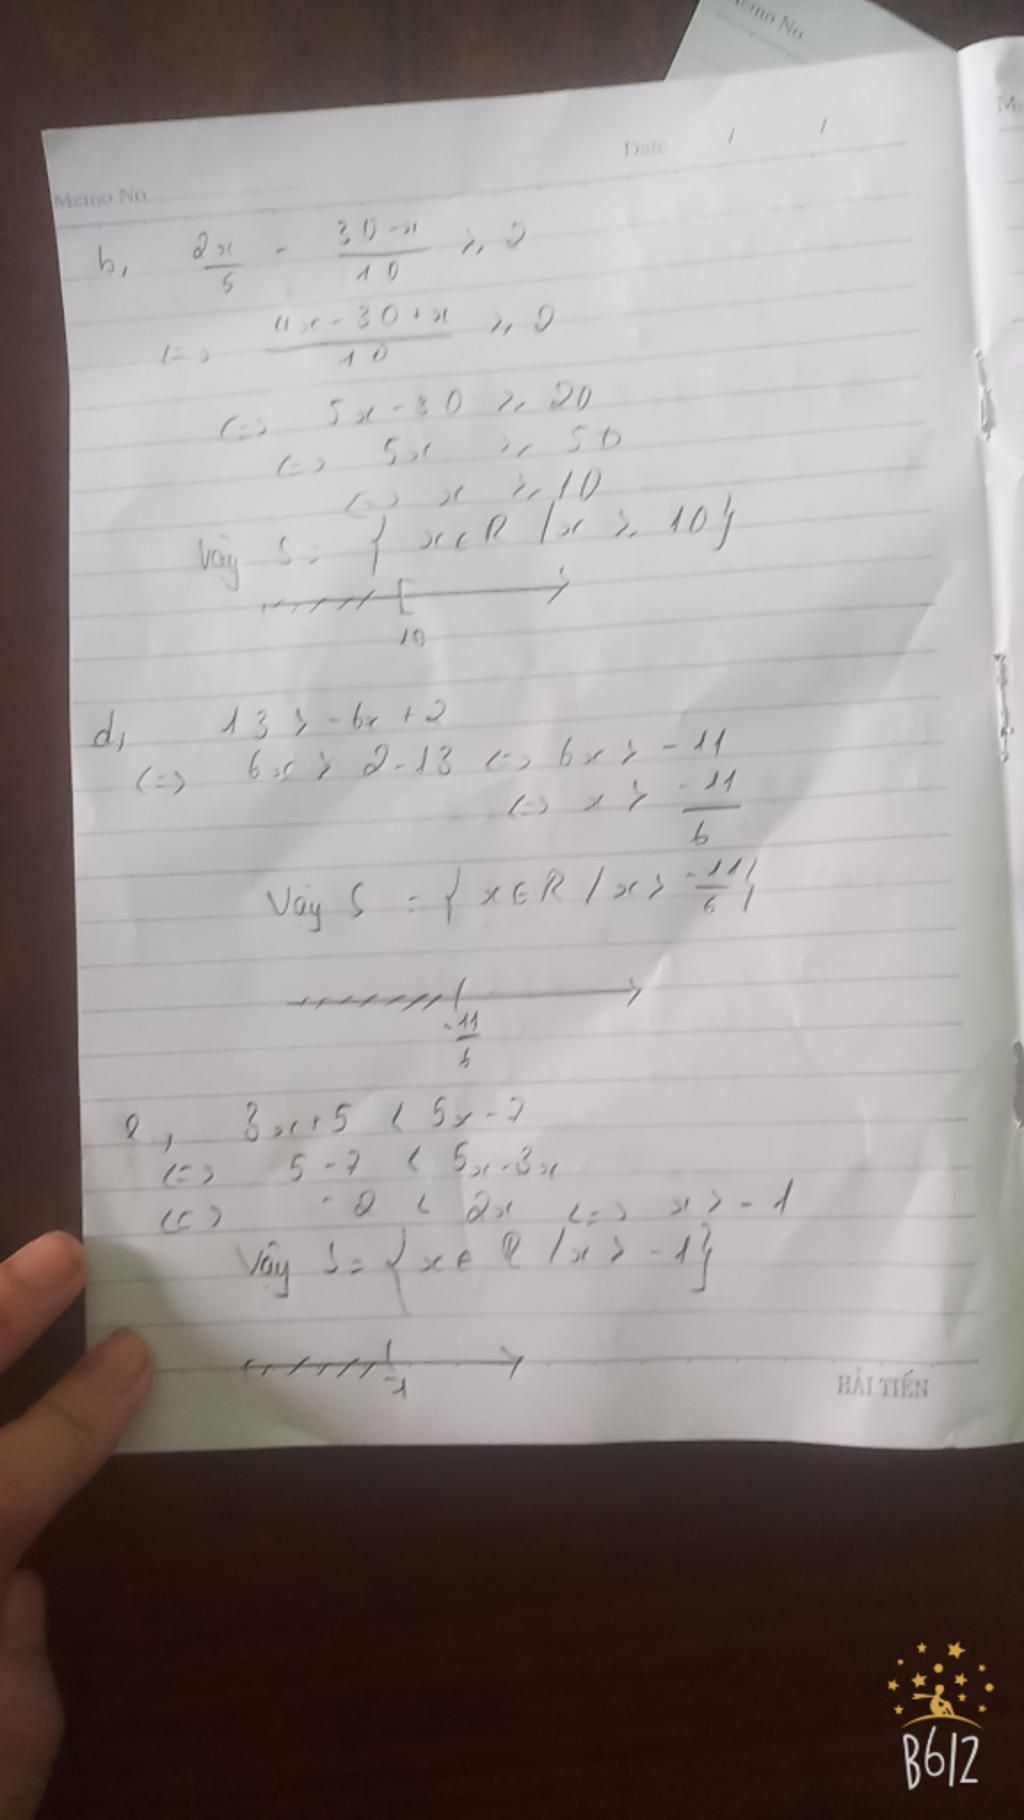 Memo No
Memo No. Date / /
b, 2x/5 - (30-x)/10 ≥ 2
<=> (4x-30+x)/10 ≥ 2
<=> 5x-30 ≥ 20
<=> 5x ≥ 50
<=> x ≥ 10
Vậy S = { x∈R / x ≥ 10}
10
d, 13 > -6x + 2
<=> 6x > 2-13 <=> 6x > -11
<=> x > -11/6
Vậy S = { x∈R / x > -11/6}
-11/6
e, 3x+5 < 5x-7
<=> 5-7 < 5x-3x
<=> -2 < 2x <=> x > -1
Vậy S = {x∈R / x > -1}
-1
HẢI TIẾN
B612